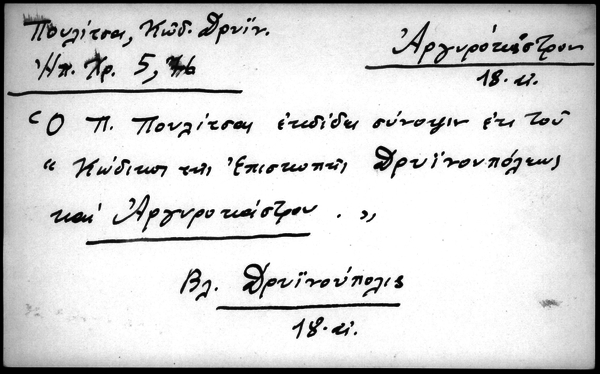 Πουλίτσα, Κώδ. Δρυϊν.
Ἠπ. Χρ. 5,
Ἀργυρόκαστρον
18. αἰ.
Ὁ Π. Πουλίτσας ἐκδίδει σύνοψιν ἐκ τοῦ
“ Κώδικος τῆς Ἐπισκοπῆς Δρυϊνουπόλεως
καί Ἀργυροκάστρου . „
Βλ. Δρυϊνούπολις
18. αἰ.